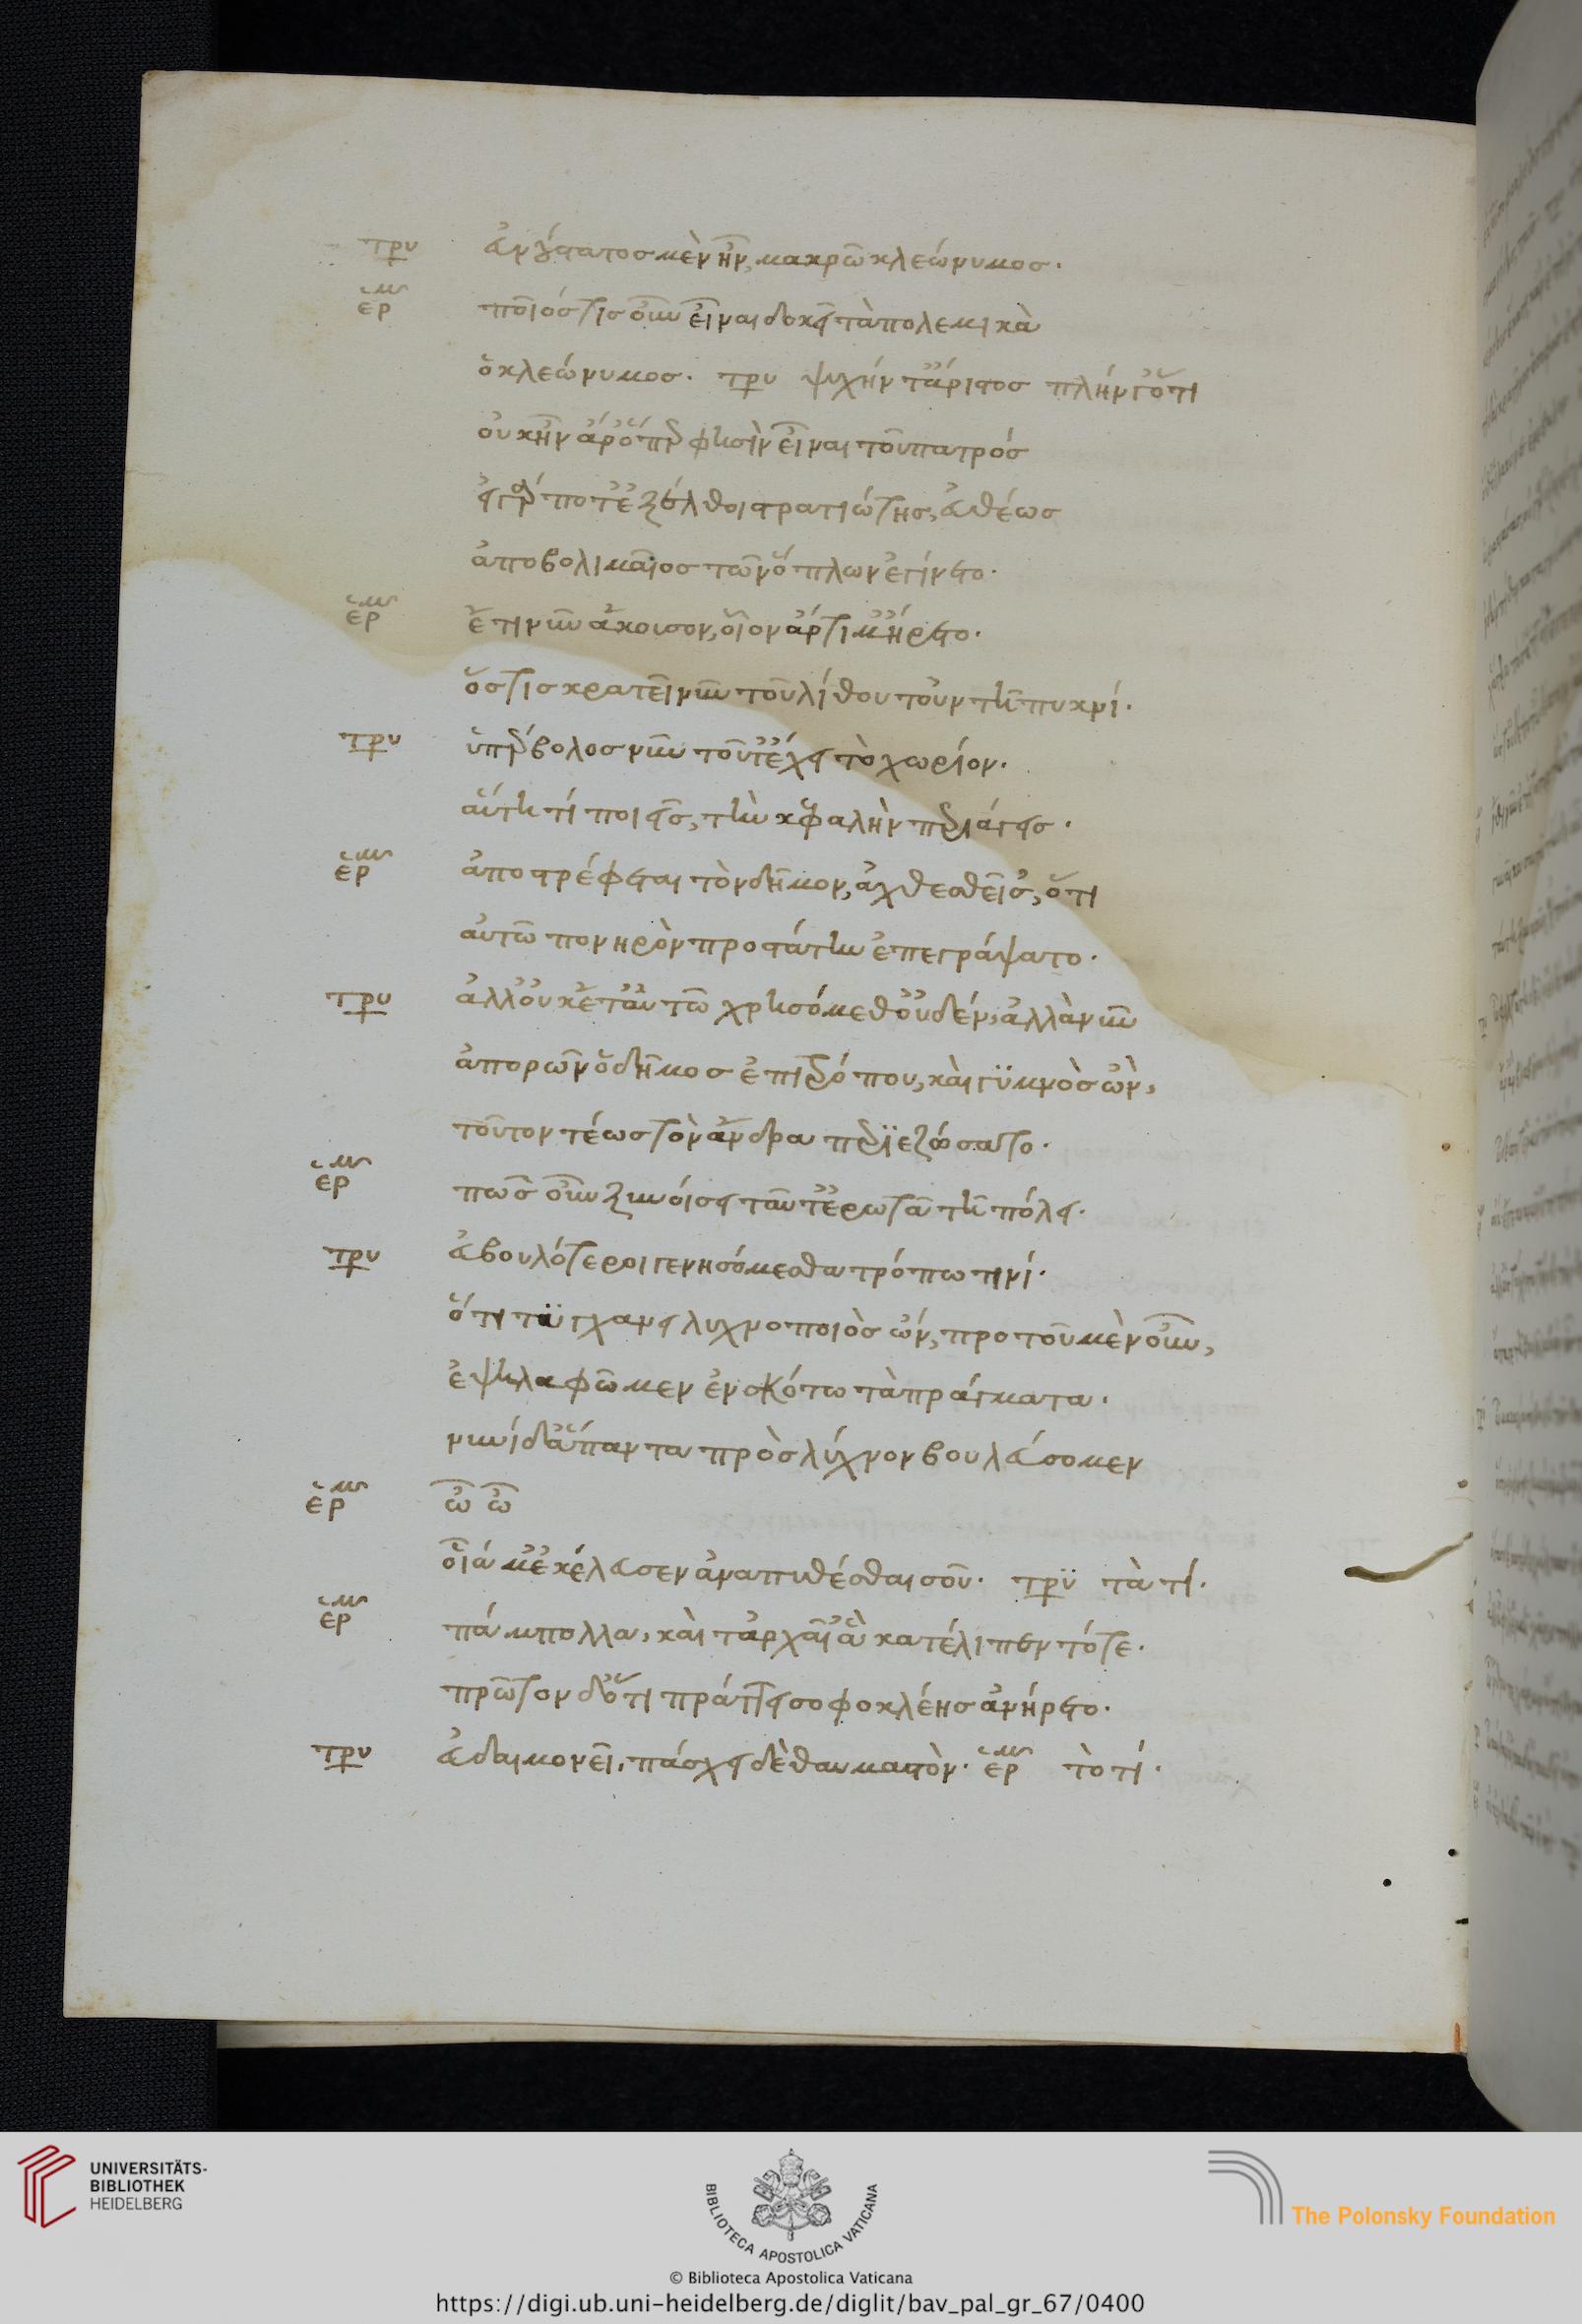 τρυ εὐνούστατος μὲν ἦν, μακρῶ κλεώνυμος.
ἑρμ ποῖός τις οὖν εἶναι δοκεῖ τὰ πολεμικὰ
ὁ κλεώνυμος. τρυ ψυχήν τ' ἄριστος πλήν γ' ὅτι
οὐκ ἦν ἄρ' ὅπερ φησὶν εἶναι τοῦ πατρός
εἰ γάρ ποτ' ἐξέλθοι στρατιώτης, εὐθέως
ἀποβολιμαῖος τῶν ὅπλων ἐγίνετο.
ἑρμ ἔτι νῦν ἄκουσον, οἷον ἄρτι μ' ἤρετο.
ὅστις κρατεῖ νῦν τοῦ λίθου τοῦν τῆ πυκνί.
τρυ ὑπέρβολος νῦν τοῦτ' ἔχει τὸ χωρίον.
αὕτη τί ποιεῖς, τὴν κεφαλὴν περιάγεις.
ἑρμ ἀποστρέφεται τὸν δῆμον, ἀχθεσθεῖσ', ὅτι
αὐτῶ πονηρὸν προστάτην ἐπεγράψατο.
τρυ ἀλλ' οὐκ ἔτ' αὐτῶ χρησόμεθ' οὐδέν, ἀλλὰ νῦν
ἀπορῶν ὁ δῆμος ἐπιτρόπου, καὶ γϋμνὸς ὢν,
τοῦτον τέως τὸν ἄνδρα περϊεζώσατο.
ἑρμ πῶς οὖν ξυνοίσει ταῦτ' ἐρωτᾶ τῆ πόλει.
τρυ εὐβουλότεροι γενησόμεσθα τρόπω τινί.
ὅτι τϋγχανει λυχνοποιὸς ὤν, προτοῦ μὲν οὖν,
ἐψηλαφῶμεν ἐν σκότω τὰ πράγματα.
νυνί δ' ἅπαντα πρὸς λύχνον βουλεύσομεν
ἑρμ ὦ ὦ
οἷά μ' ἐκέλευσεν ἀναπυθέσθαι σοῦ. τρϋ τὰ τί.
ἑρμ πάμπολλα, καὶ τἀρχαῖ' ἃ κατέλιπεν τότε.
πρῶτον δ' ὅτι πράττει σοφοκλέης ἀνήρετο.
τρυ εὐδαιμονεῖ, πάσχει δὲ θαυμαστὸν. ἑρμ τὸ τί.
UNIVERSITÄTS-
BIBLIOTHEK
HEIDELBERG
BIBLIOTECA APOSTOLICA VATICANA
The Polonsky Foundation
© Biblioteca Apostolica Vaticana
https://digi.ub.uni-heidelberg.de/diglit/bav_pal_gr_67/0400